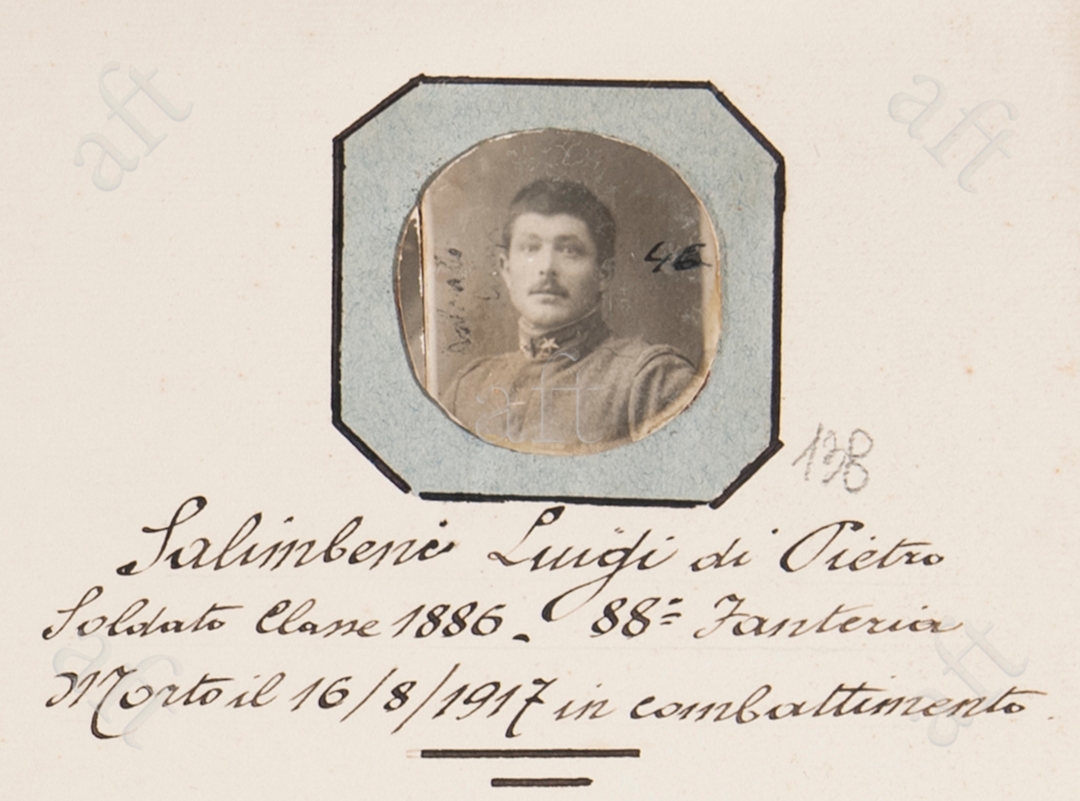 46
138
Salimbeni Luigi di Pietro
Soldato Classe 1886. 88= Fanteria
Morto il 16/8/1917 in combattimento.
aft
aft
aft
aft
aft